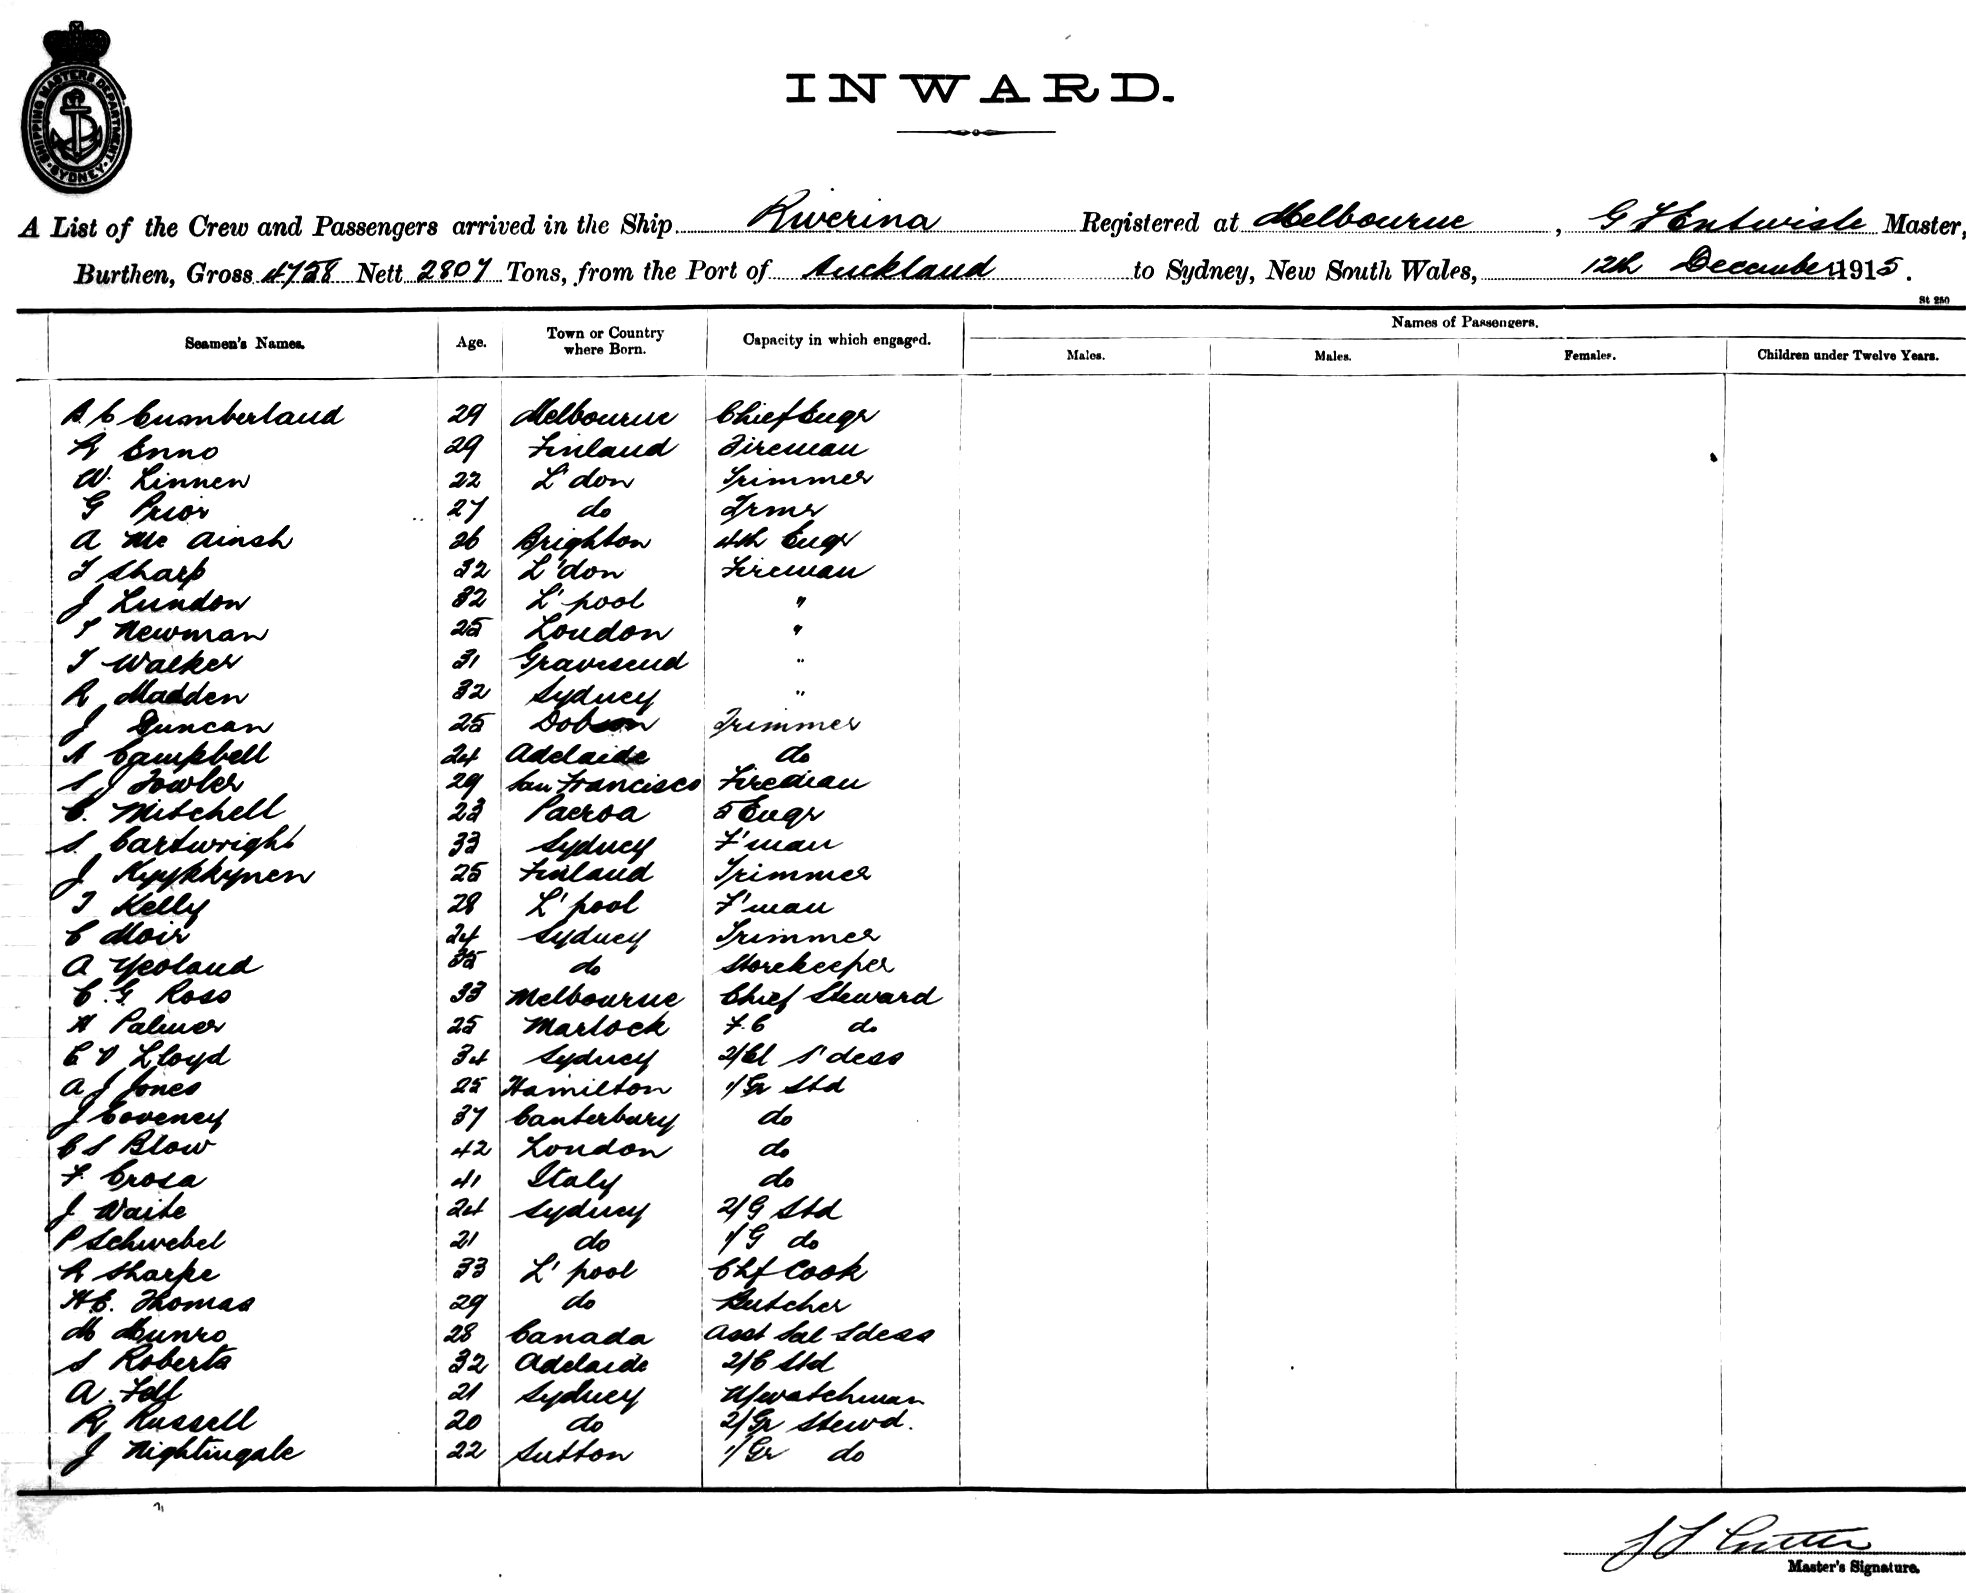 SHIPPING MASTERS DEPARTMENT. SYDNEY
INWARD.
A List of the Crew and Passengers arrived in the Ship Riverina Registered at Melbourne, G F Entwisle Master,
Burthen, Gross 4758 Nett 2807 Tons, from the Port of Auckland to Sydney, New South Wales, 12th December 1915.
St 250
Seamen's Names. Age. Town or Country where Born. Capacity in which engaged. Names of Passengers.
Males. Males. Females. Children under Twelve Years.
A. C Cumberland 29 Melbourne Chief Engr
A Enno 29 Finland Fireman
W. Linnen 22 L'don Trimmer
G Prior 27 do Trmr
A Mc Ainsh 26 Brighton 4th Engr
T Sharp 32 L'don Fireman
J Lundon 32 L'pool "
T Newman 25 London "
T Walker 31 Gravesend "
R Madden 32 Sydney "
J Duncan 25 Dobson Trimmer
A Campbell 24 Adelaide do
S J Fowler 29 San Francisco Fireman
C. Mitchell 23 Paeroa 5 Engr
S. Cartwright 33 Sydney F'man
J Kyykkynen 25 Finland Trimmer
T Kelly 28 L'pool F'man
C Moir 24 Sydney Trimmer
A Yeoland 35 do Storekeeper
C. G. Ross 33 Melbourne Chief Steward
H Palmer 25 Martock F. C do
E V Lloyd 34 Sydney 2/Cl S'dess
A J Jones 25 Hamilton 1/Gr Std
J Coveney 37 Canterbury do
C S Blow 42 London do
F. Crosa 41 Italy do
J Waite 24 Sydney 2/G Std
P Schwebel 21 do 1/G do
A Sharpe 33 L'pool Chf Cook
H C. Thomas 29 do Butcher
M Munro 28 Canada Asst Sal Sdess
S Roberts 32 Adelaide 2/C Std
A. Fell 21 Sydney N/watchman
R Russell 20 do 2/Gr Stewd.
J Nightingale 22 Sutton 1/Gr do
Master's Signature.